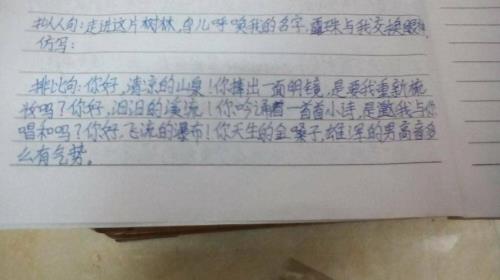 拟人句:走进这片树林,鸟儿呼唤我的名字,露珠与我交换眼神
仿写:
排比句:你好,清凉的山泉!你捧出一面明镜,是要我重新梳
妆吗?你好,汩汩的溪流!你吟诵着一首首小诗,是邀我与你
唱和吗?你好,飞流的瀑布!你天生的金嗓子,雄浑的男高音多
么有气势。